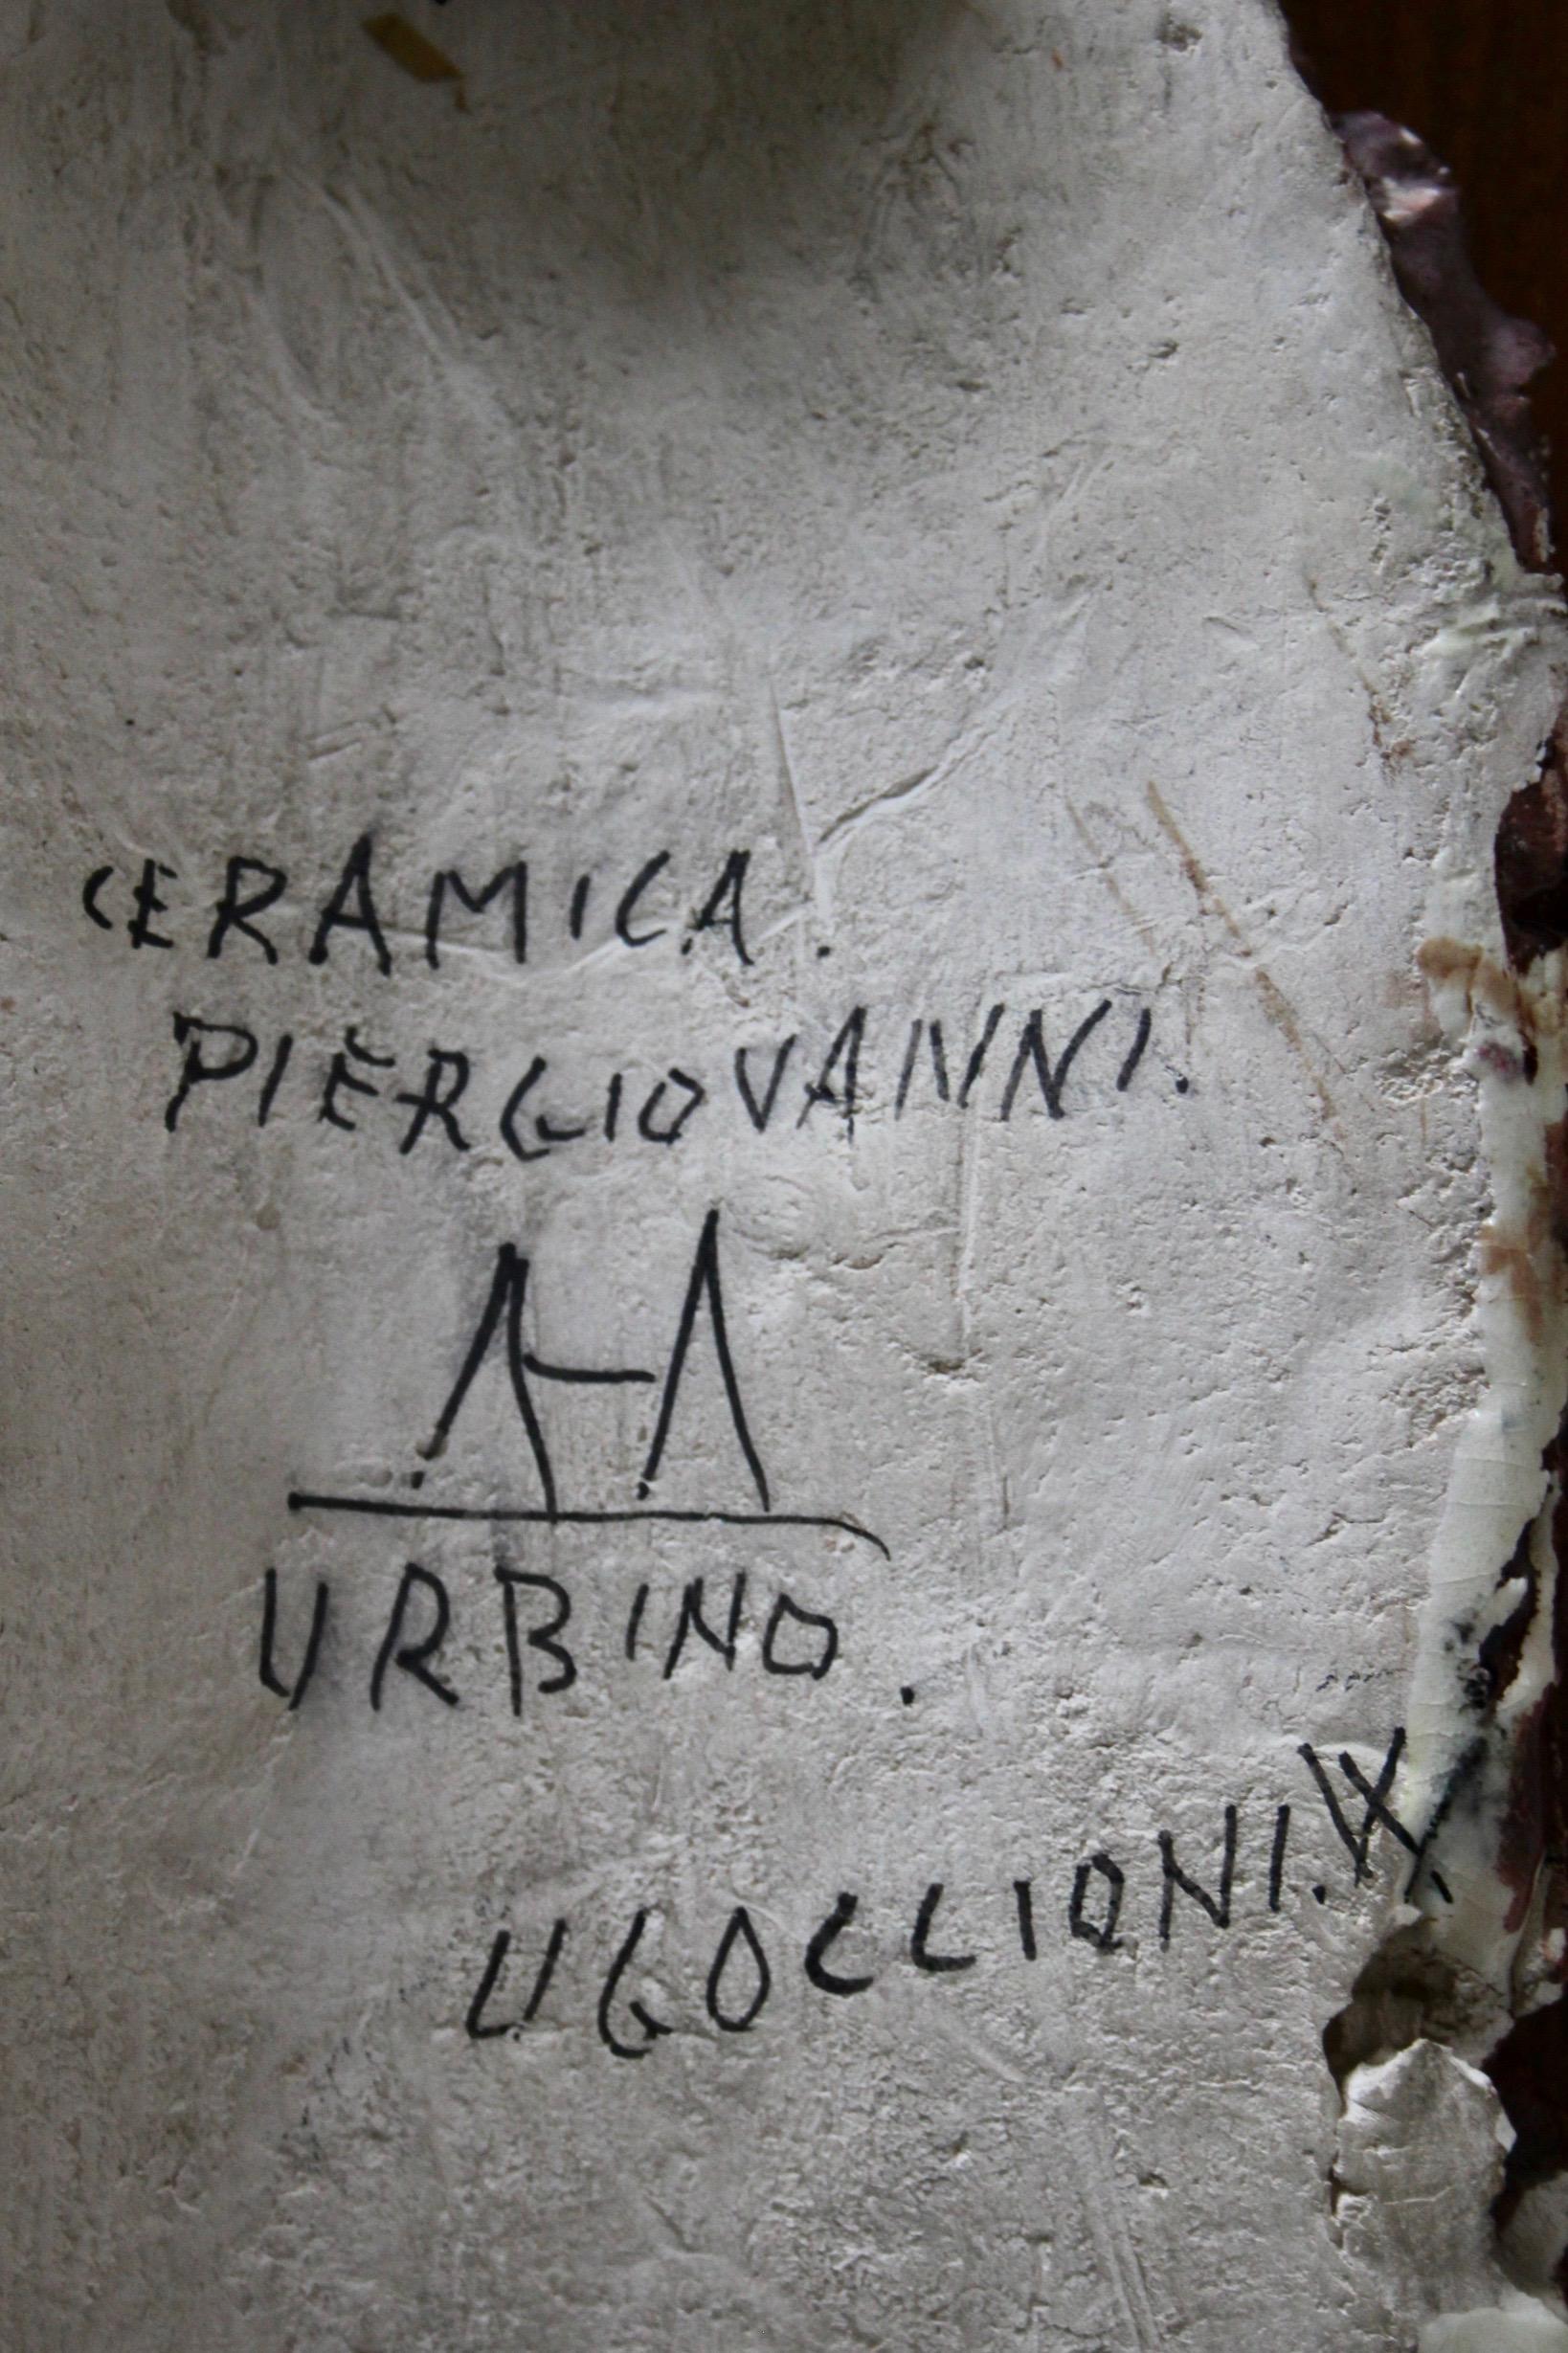 CERAMICA.
PIERGIOVANNI.
URBINO.
UGOCCIONI.